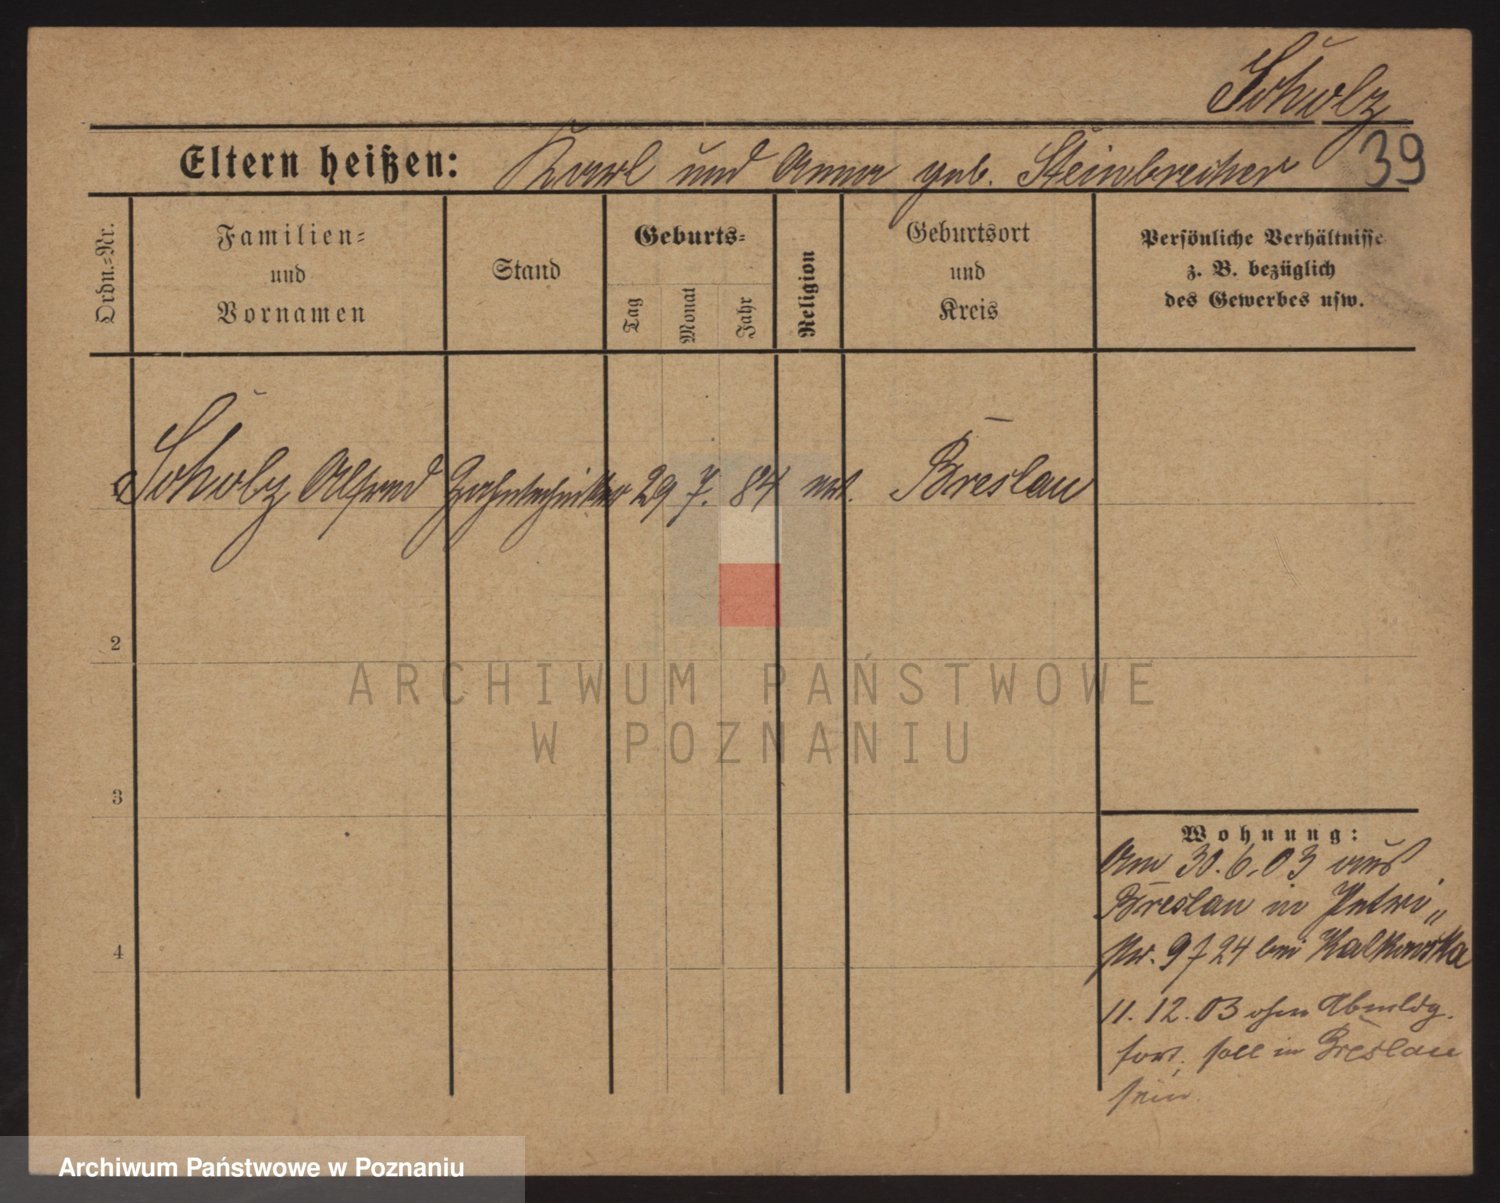 Scholz
39
Eltern heißen: Karl und Anna geb. Steinbrecher
Ordn.-Nr.
Familien-
und
Vornamen
Stand
Geburts-
Tag
Monat
Jahr
Religion
Geburtsort
und
Kreis
Persönliche Verhältnisse
z. B. bezüglich
des Gewerbes usw.
1 Scholz Alfred Zahntechniker 29 7. 84 Breslau
2
3
4
Wohnung:
Am 30.6.03 aus
Breslau in Petri„
24 bei Kalkowska
11.12.03 ohne Abmldg.
fort, soll in Breslau
sein.
ARCHIWUM PAŃSTWOWE
W POZNANIU
Archiwum Państwowe w Poznaniu